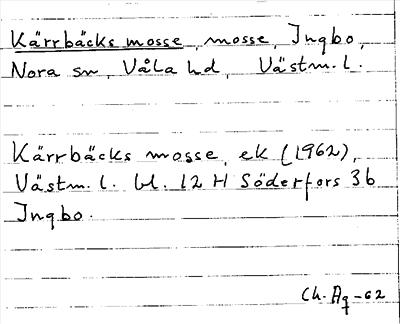 Kärrbäcks mosse, mosse, Ingbo,
Nora sn, Våla hd, Västm. l.
Kärrbäcks mosse, ek (1962),
Västm. l. bl. 12 H Söderfors 3b
Ingbo.
Ch. Ag -62